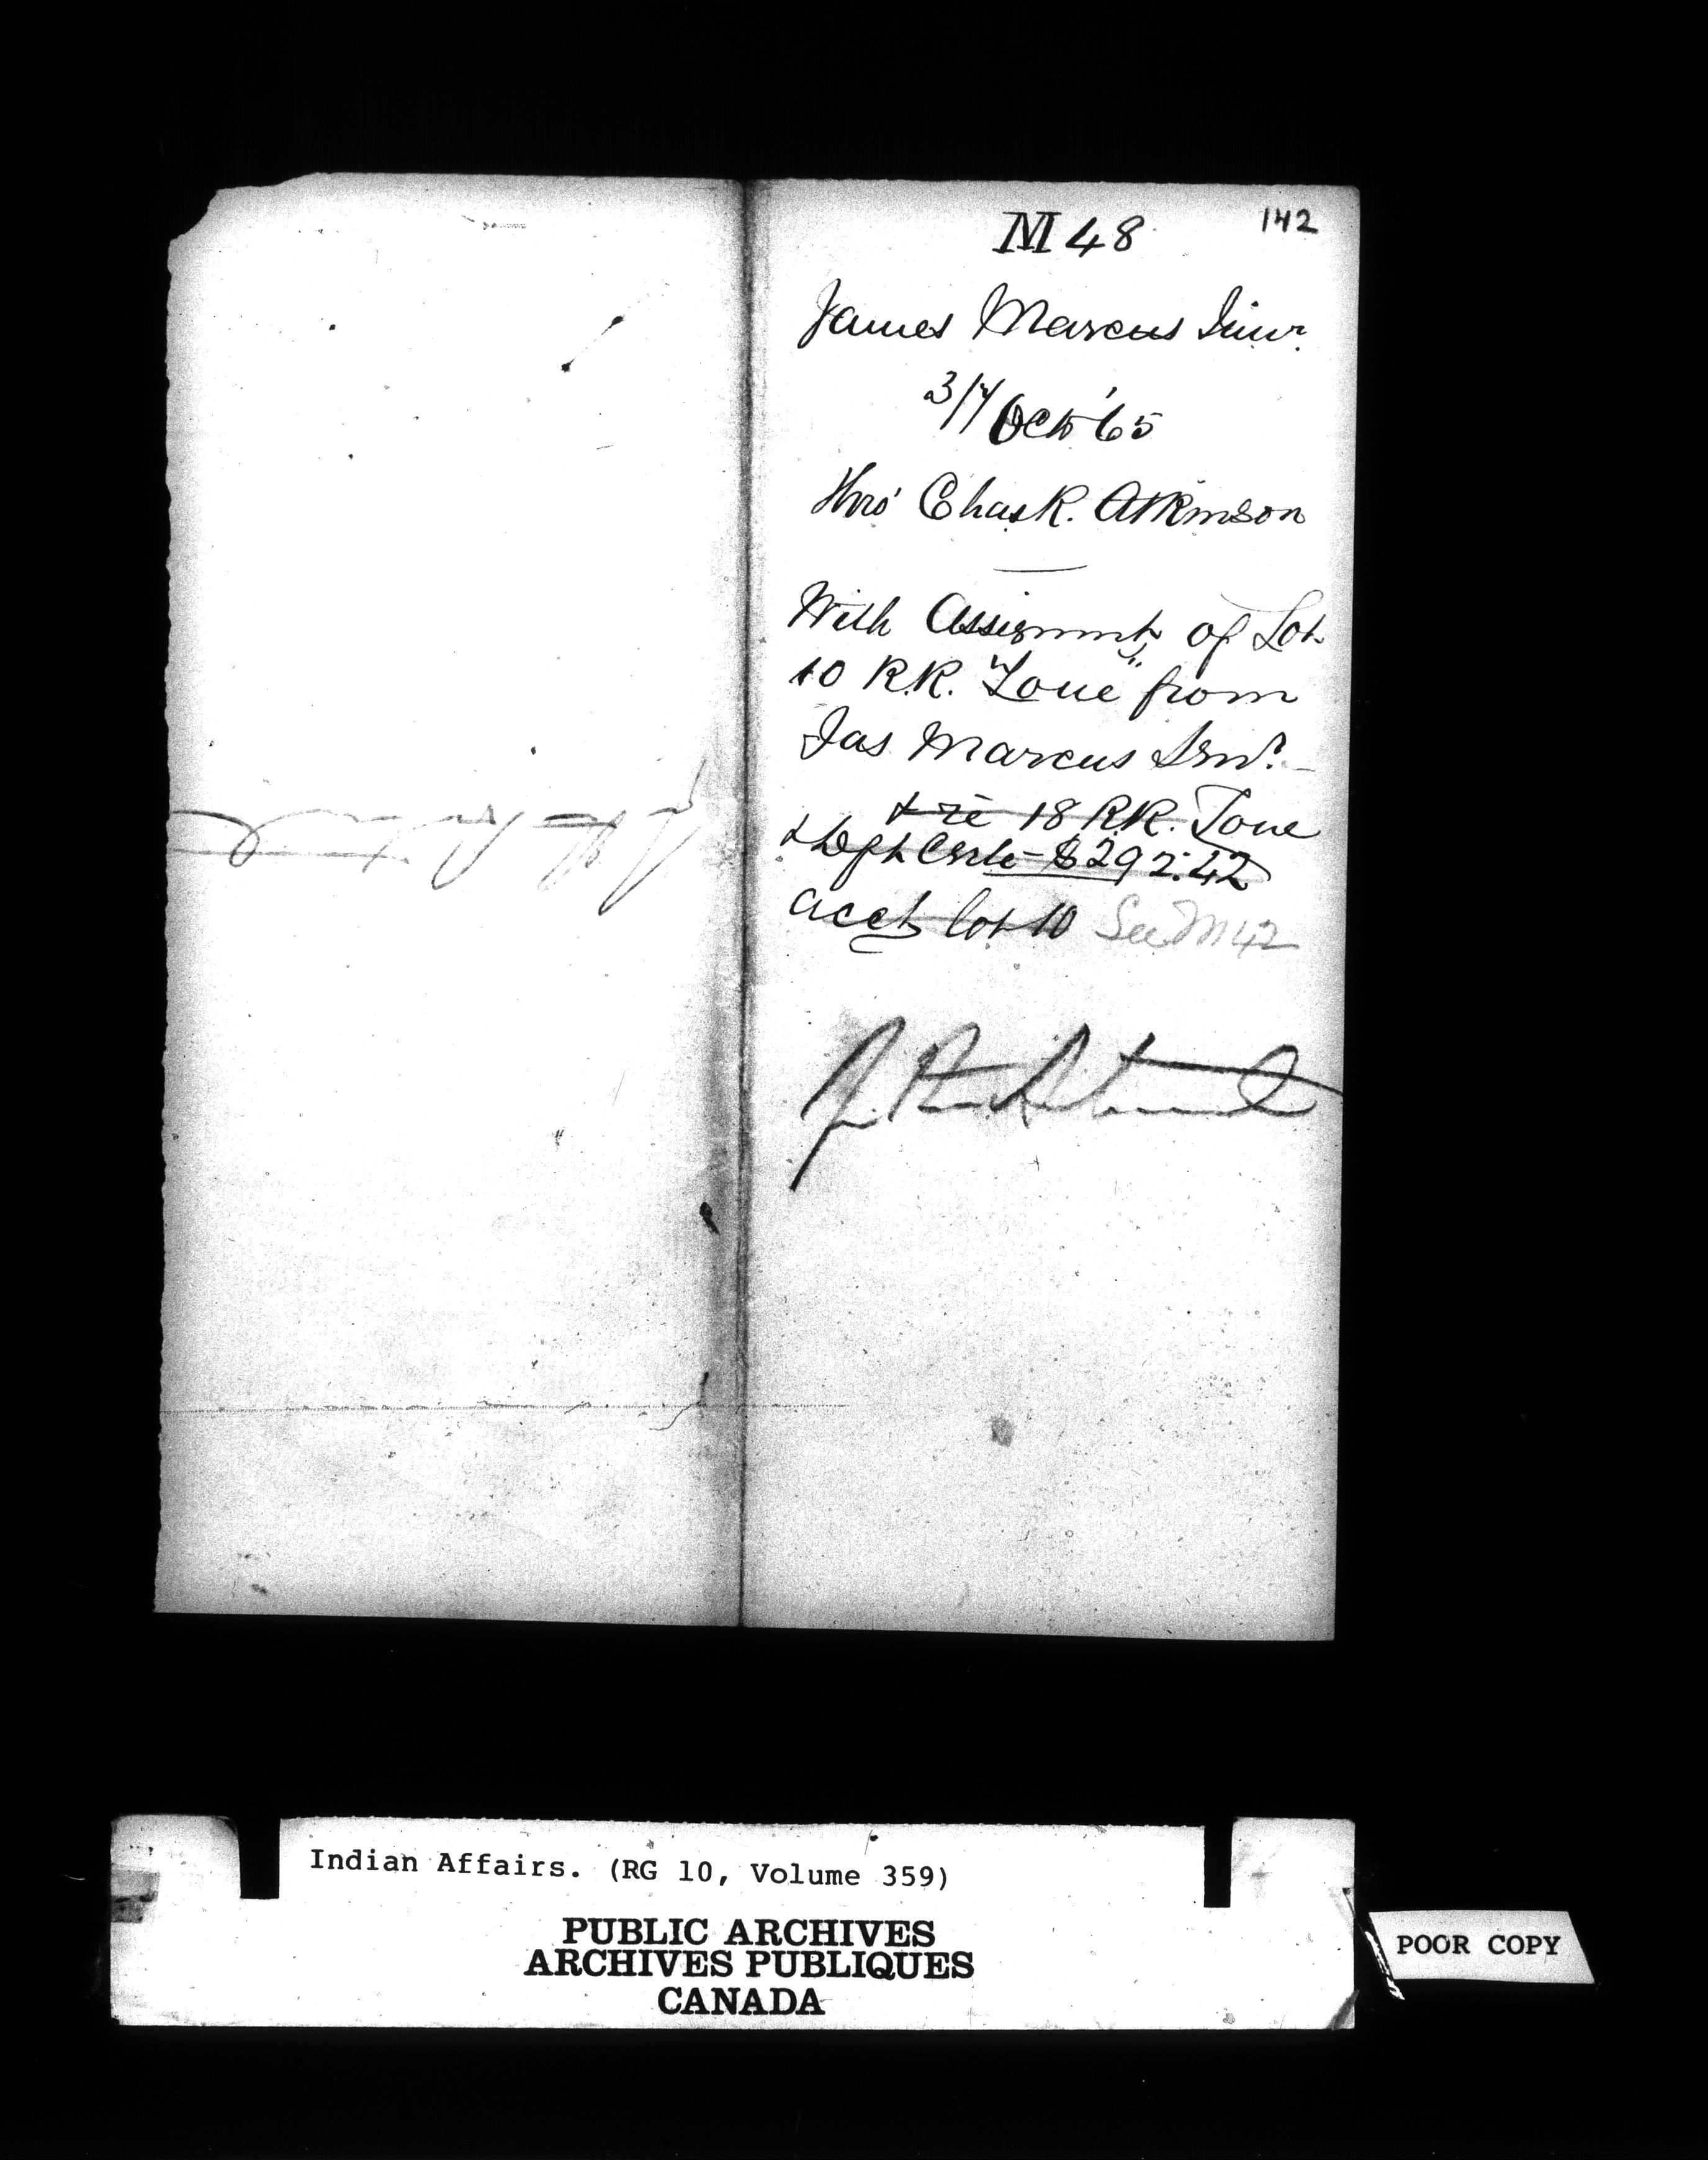 142
M 48
James Marcus Junr.
3/4 Oct '65
Thro' Chas R. Atkinson
With Assignmt of Lot
10 R.R. "Zone" from
Jas Marcus Senr. -
& re 18 R.R. Zone
& Dept Certe - $292.42
acct Lot 10 See M 42
Indian Affairs. (RG 10, Volume 359)
PUBLIC ARCHIVES
ARCHIVES PUBLIQUES
CANADA
POOR COPY